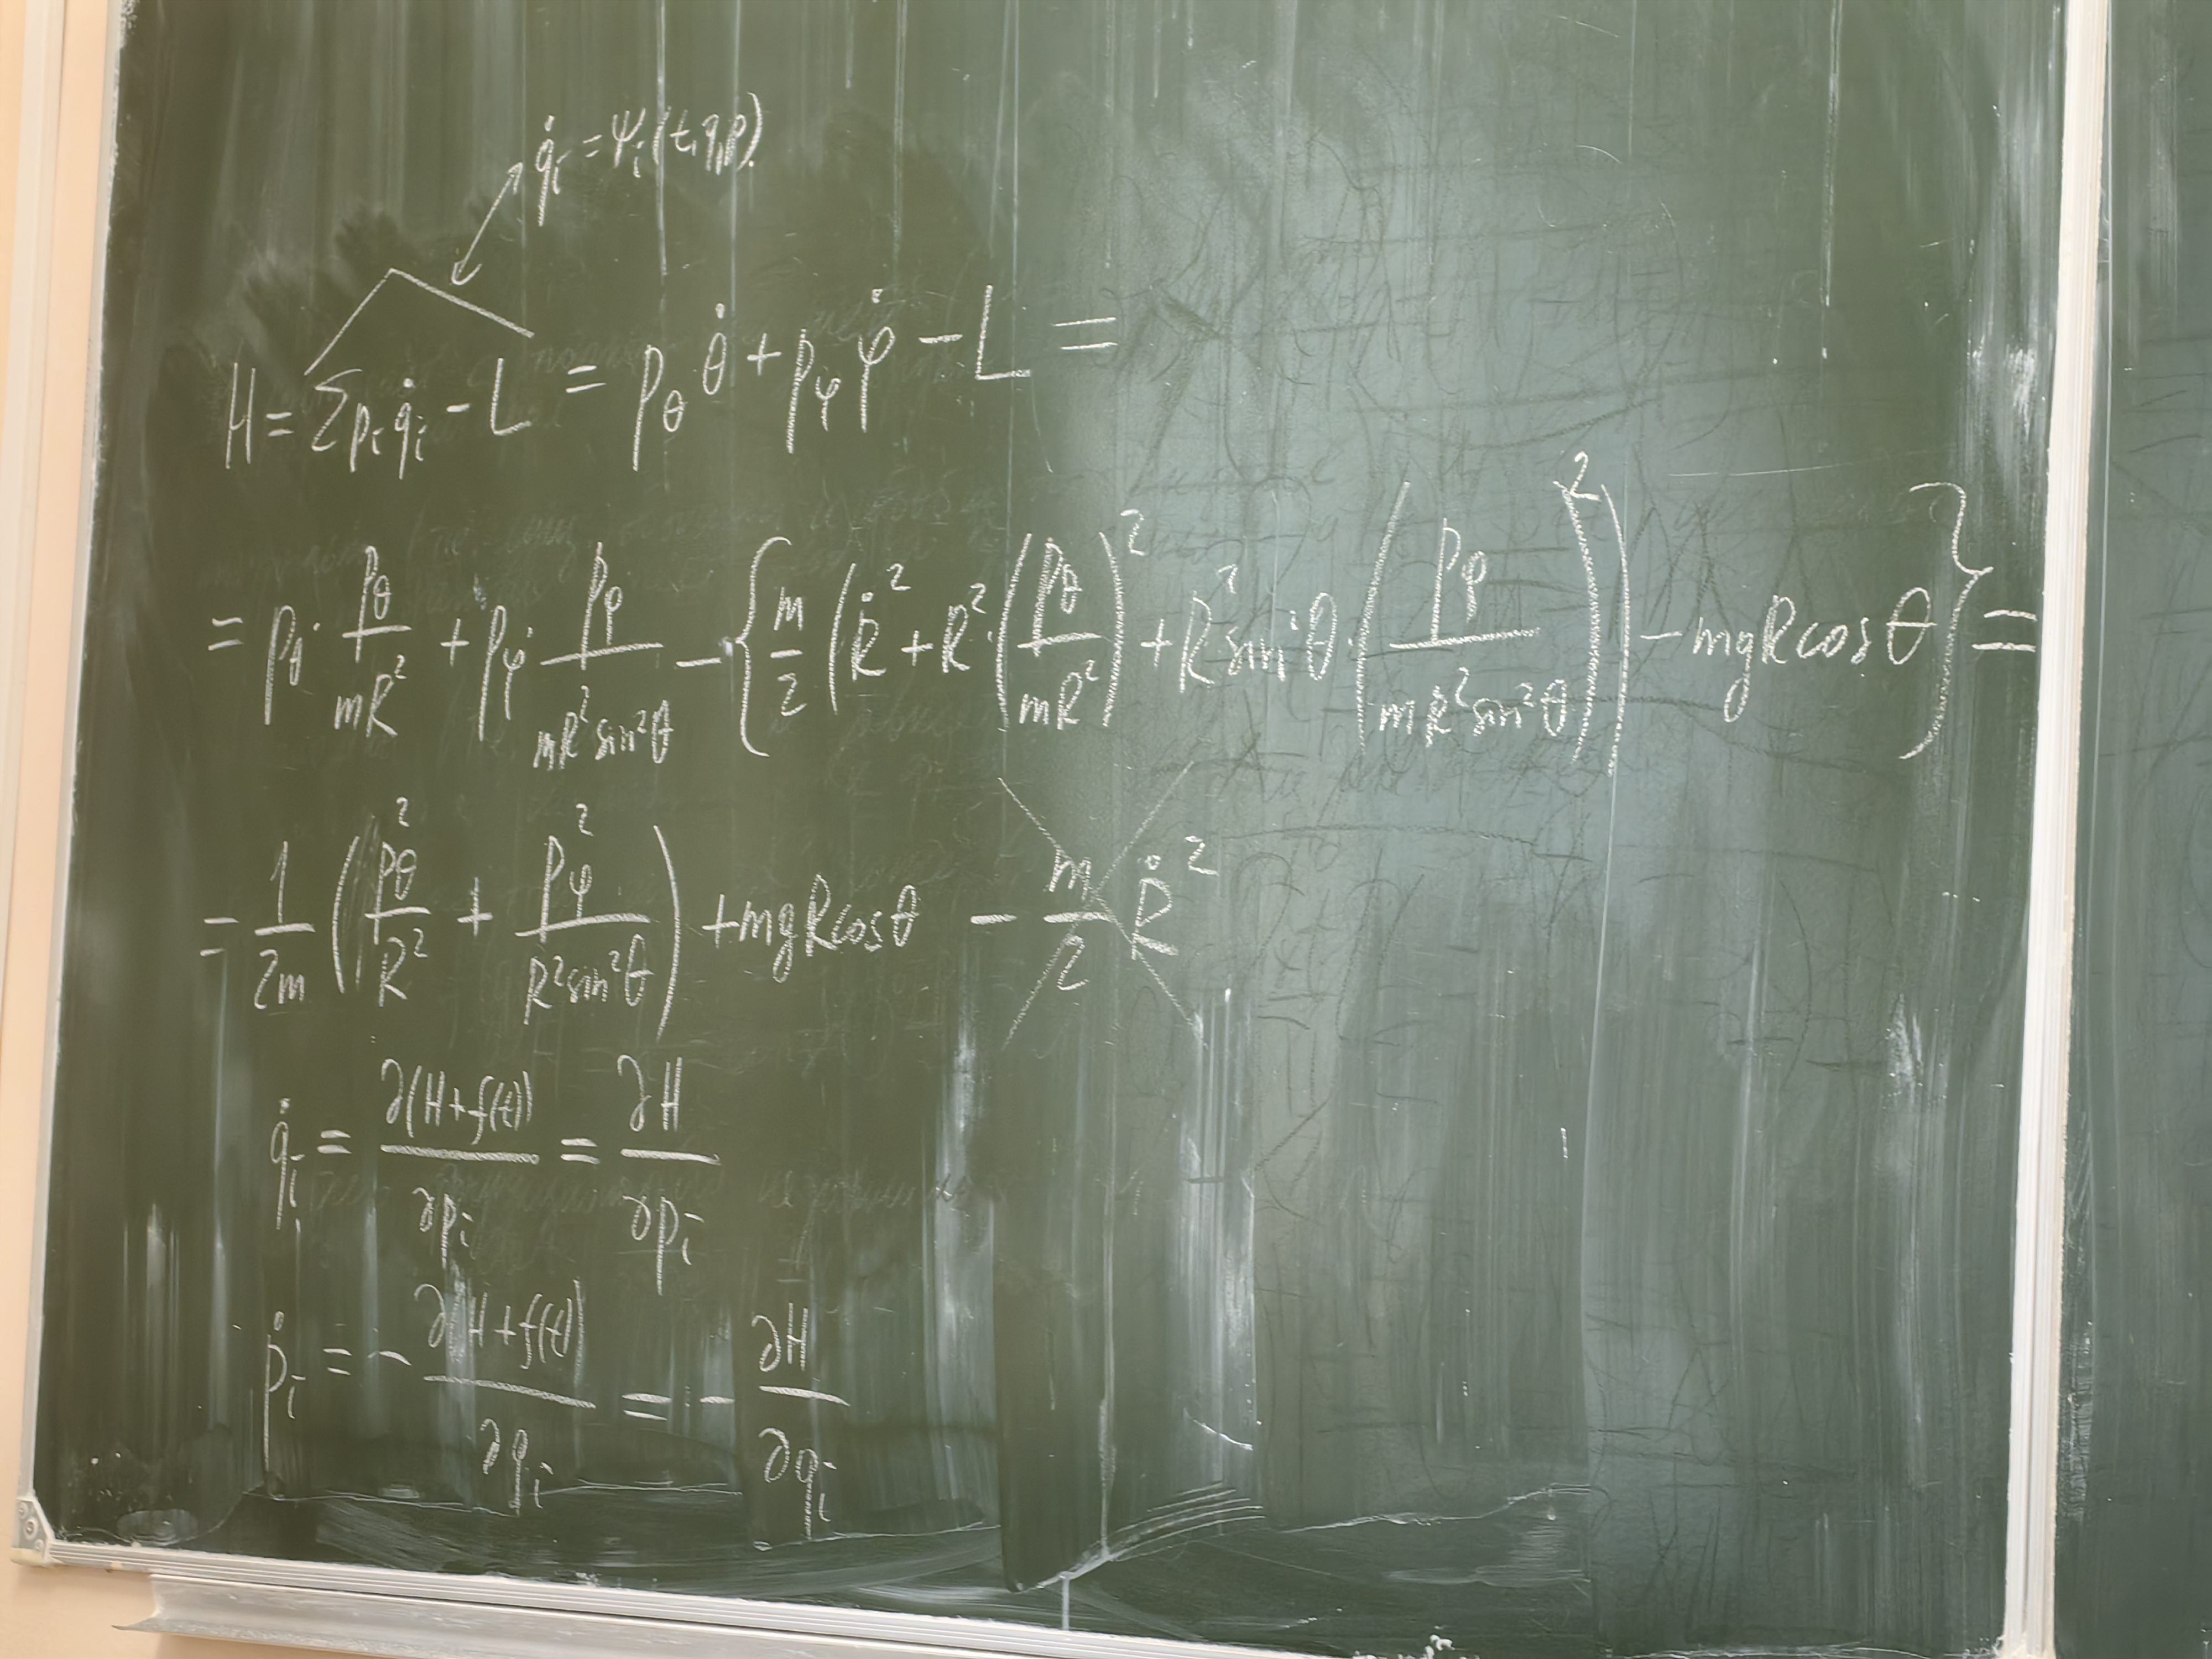 q̇ᵢ = ψᵢ(t,q,p).
H = Σpᵢq̇ᵢ - L = p_θ θ̇ + p_φ φ̇ - L =
= p_θ · p_θ/(mR²) + p_φ · p_φ/(mR² sin²θ) - {m/2 (Ṙ² + R² · (p_θ/(mR²))² + R² sin²θ · (p_φ/(mR² sin²θ))²) - mgR cos θ} =
= 1/(2m) (p_θ²/R² + p_φ²/(R² sin²θ)) + mgR cos θ - m/2 Ṙ²
q̇ᵢ = ∂(H+f(t))/∂pᵢ = ∂H/∂pᵢ
ṗᵢ = - ∂(H+f(t))/∂qᵢ = - ∂H/∂qᵢ